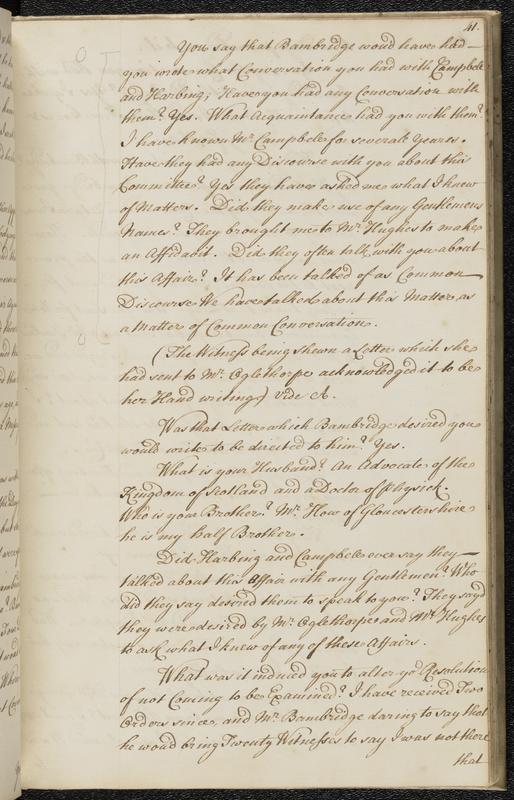 41.
You say that Bambridge woud have had
you wrote what Conversation you had with Campbell
and Harbing; Have you had any Conversation with
them? Yes. What Acquaintance had you with them?
I have known Mr. Campbell for severall Years.
Have they had any Discourse with you about this
Committee? Yes they have asked me what I knew
of Matters. Did they make use of any Gentlemens
Names? They brought me to Mr. Hughes to make
an Affidavit. Did they often talk with you about
this Affair? It has been talked of as Common
Discourse We have talked about this Matter as
a Matter of Common Conversation.
(The Witness being shewn a Letter which she
had sent to Mr. Oglethorpe acknowledged it to be
her Hand writing) vide A.
Was that Letter which Bambridge desired you
would write to be directed to him? Yes.
What is your Husband? An Advocate of the
Kingdom of Scotland and a Doctor of Physick.
Who is your Brother? Mr. How of Gloucestershire
he is my half Brother.
Did Harbing and Campbell ever say they
talked about this Affair with any Gentlemen? Who
did they say desired them to speak to you? They sayd
they were desired by Mr. Oglethorpe and Mr. Hughes
to ask what I knew of any of these Affairs.
What was it induced you to alter yor. Resolution
of not Coming to be Examined? I have received Two
Orders since, and Mr. Bambridge daring to say that
he woud bring Twenty Witnesses to say I was not there
that